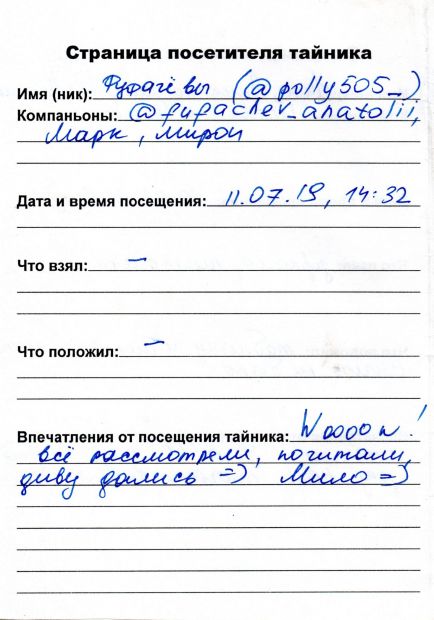 Страница посетителя тайника
Имя (ник): Фугачёвы (@polly505_)
Компаньоны: @fugachev_anatolii,
Марк, Мирон
Дата и время посещения: 11.07.19, 14:32
Что взял: —
Что положил: —
Впечатления от посещения тайника: Woooow!
всё рассмотрели, почитали,
диву дались =) Мило =)